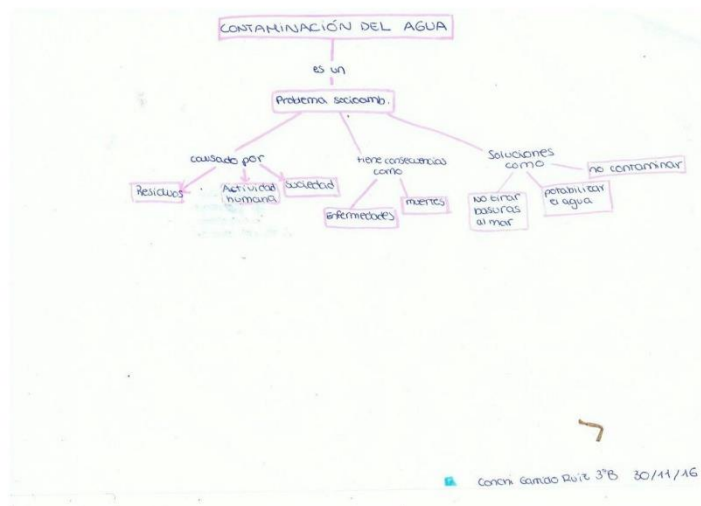 CONTAMINACIÓN DEL AGUA
es un
Problema socioamb.
causado por
Residuos
Actividad
humana
suciedad
tiene consecuencias
como
Enfermedades
muertes
Soluciones
como
NO tirar
basuras
al mar
potabilizar
el agua
no contaminar
Ruiz 3ºB 30/11/16